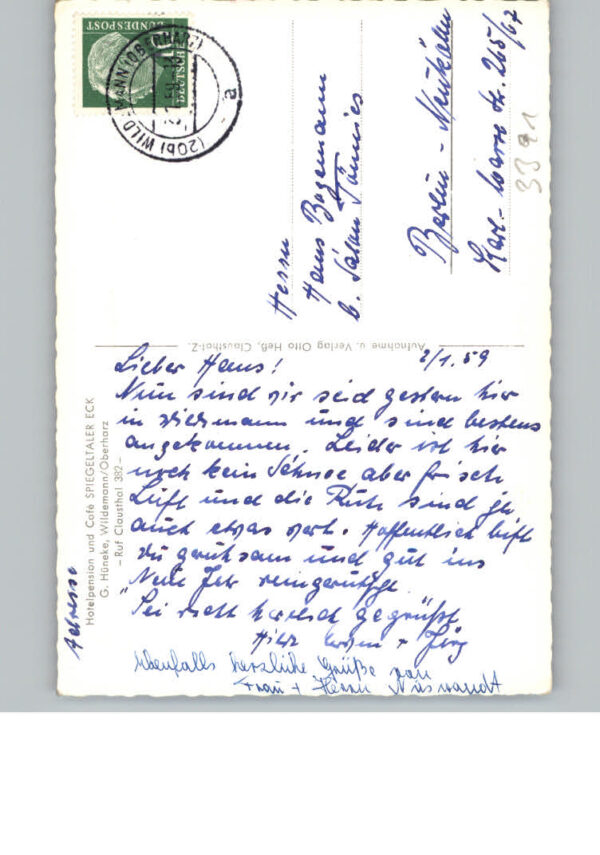 DEUTSCHE
BUNDESPOST
(20b) WILDEMANN (OBERHARZ)
a
Herrn
Hans Bogemann
b. Salan Tönnies
Berlin-Neukölln
Karl-Marx Str. 265/67
3391
Aufnahme u. Verlag Otto Heß, Clausthal-Z.
2/1.59
Lieber Hans!
Nun sind wir seid gestern hier
in Wildemann und sind bestens
angekommen. Leider ist hier
noch kein Schnee aber frische
Luft und die Ruhe sind ja
auch etwas wert. Hoffentlich bist
du geruhsam und gut ins
Neue Jahr reingerutscht.
Sei recht herzlich gegrüßt
+ Jörg
Ebenfalls herzliche Grüße von
Frau + Herrn
Adresse
Hotelpension und Café SPIEGELTALER ECK
G. Hüneke, Wildemann/Oberharz
– Ruf Clausthal 382 –